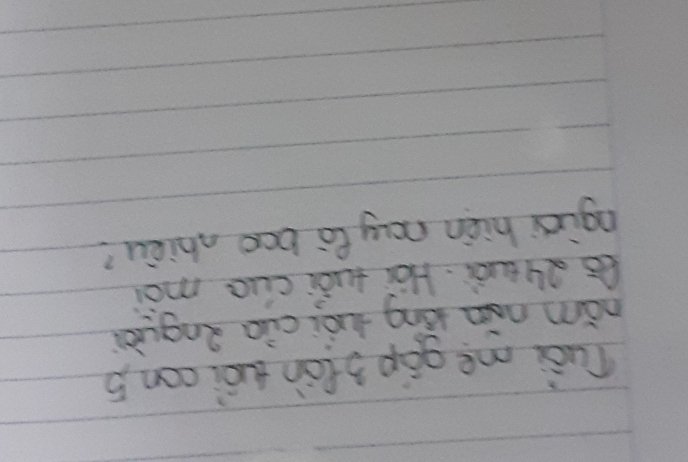 Tuổi mẹ gấp 3 lần tuổi con 5
năm nữa tổng tuổi của 2 người
là 24 tuổi. Hỏi tuổi của mỗi
người hiện nay là bao nhiêu?